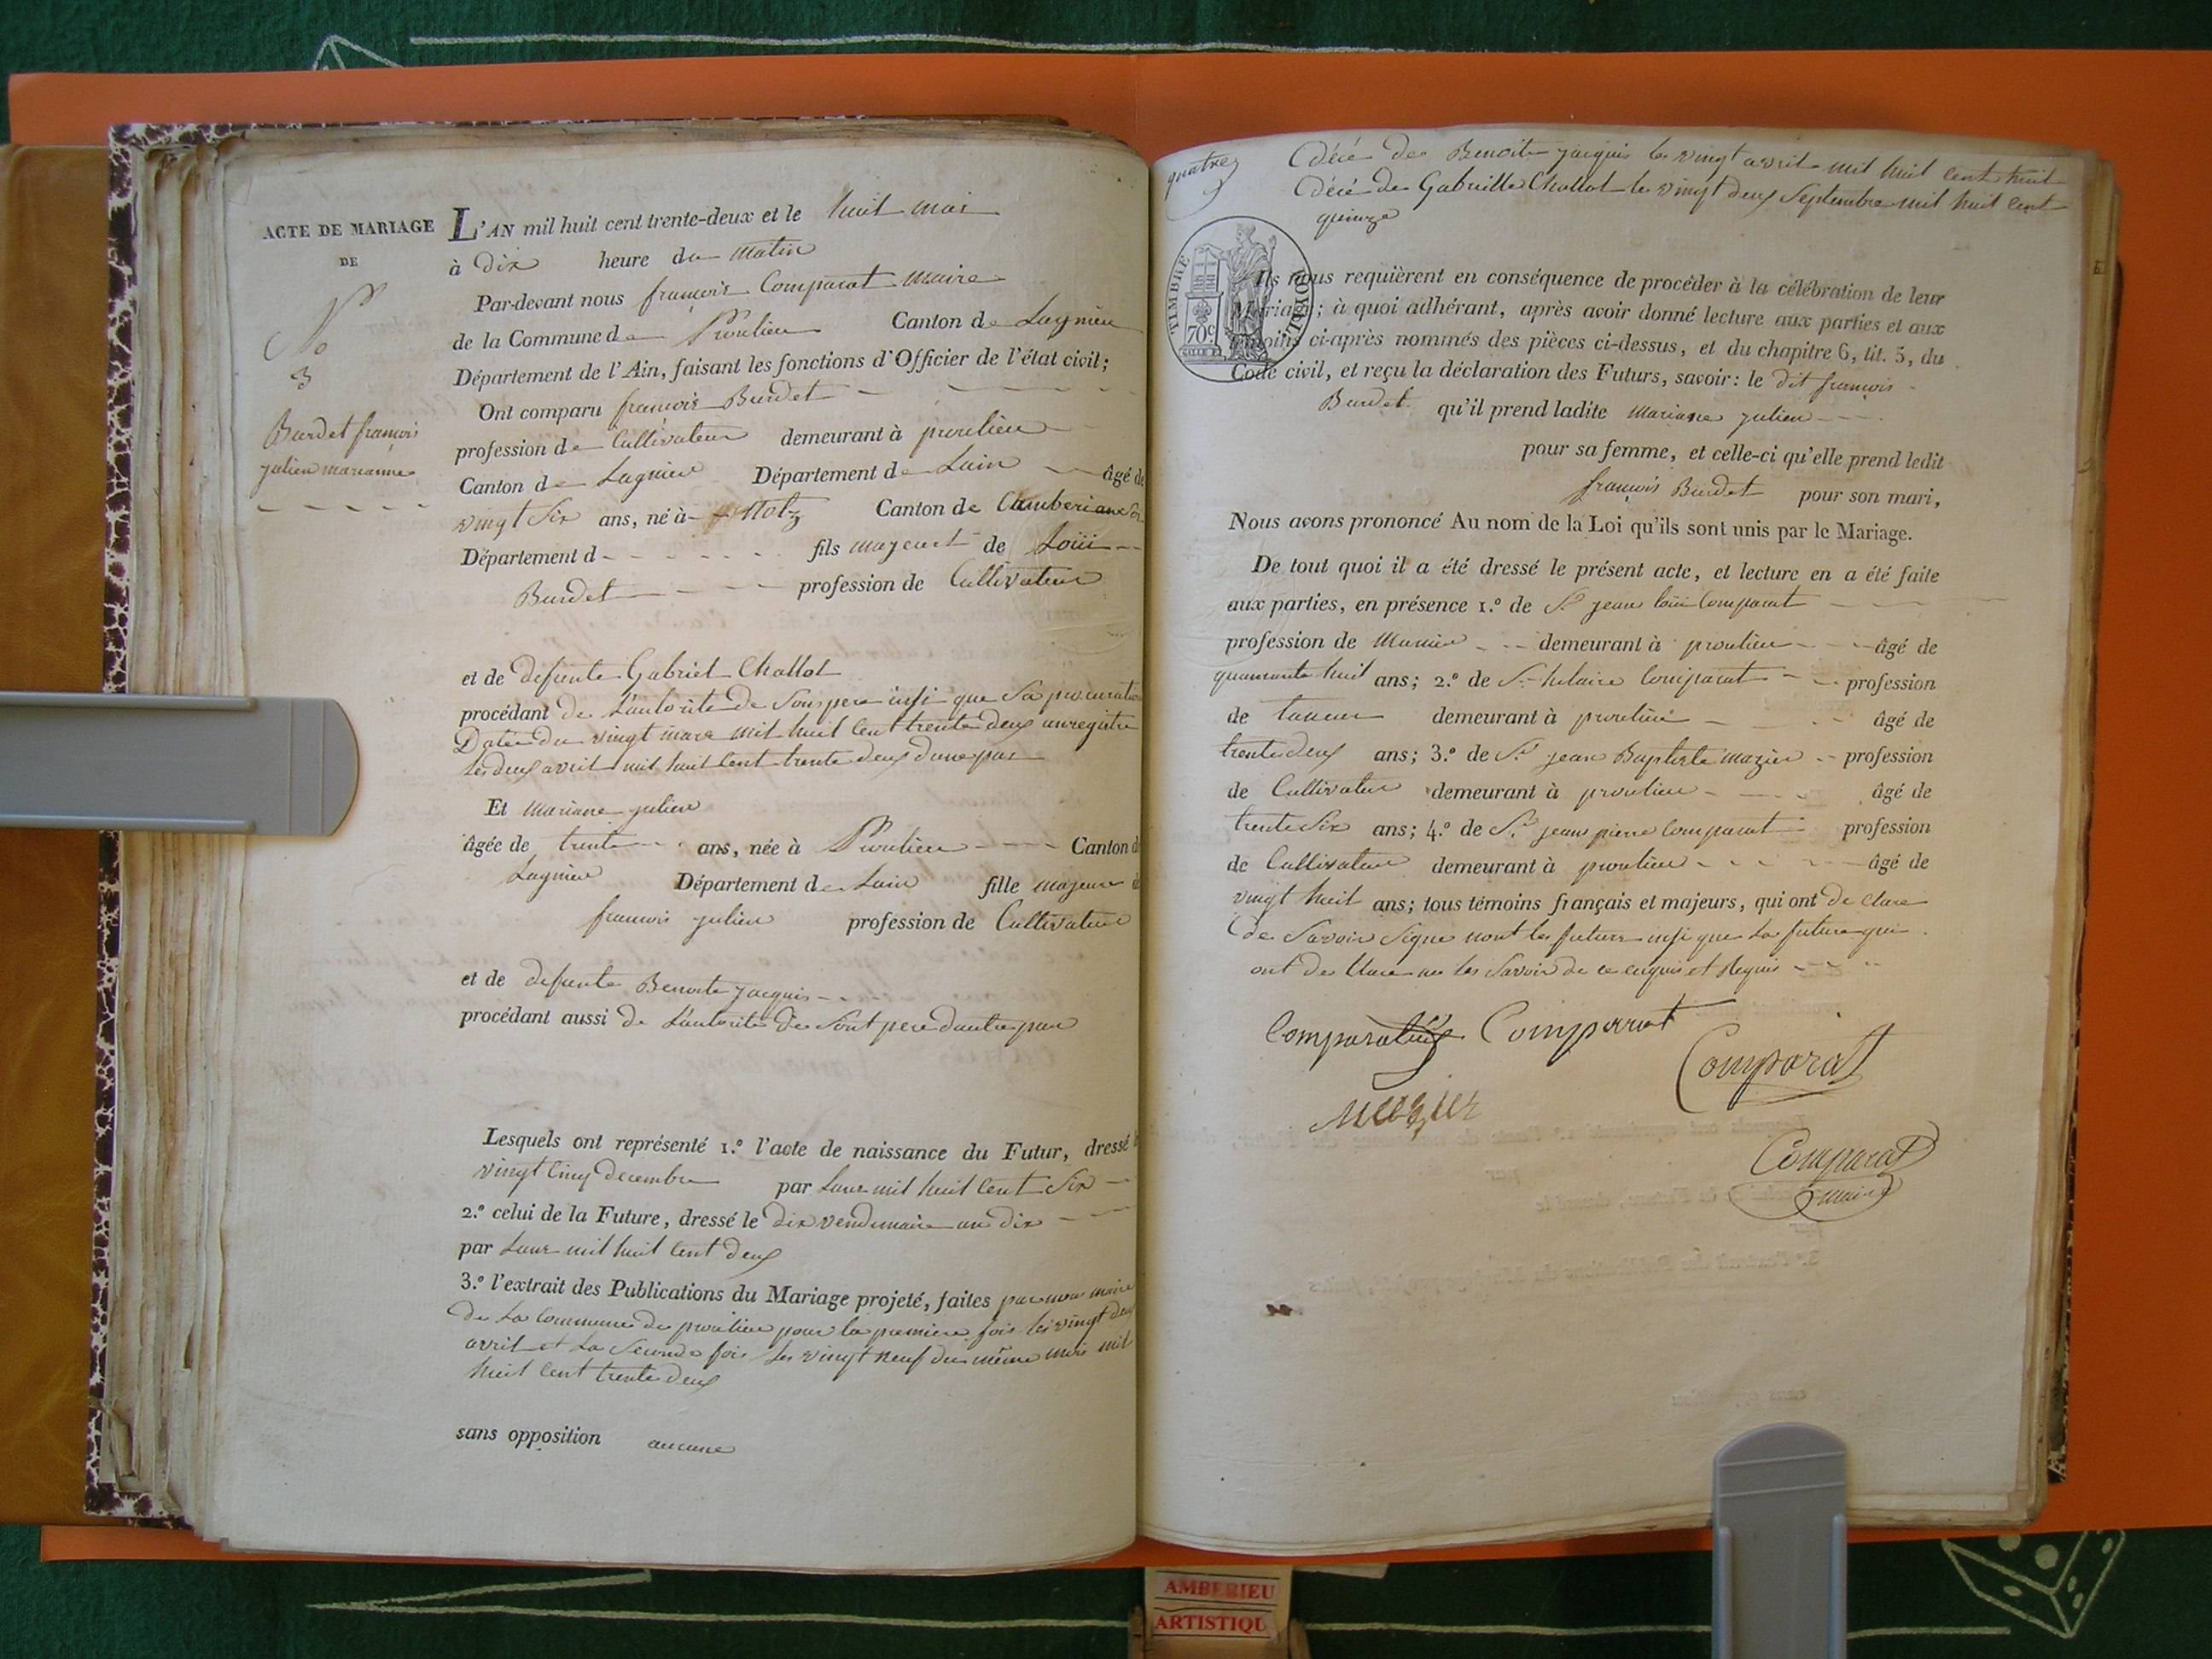 ACTE DE MARIAGE
DE
No
3
Burdet françois
julien marianne
L'AN mil huit cent trente-deux et le huit mai
à dix heure du matin
Par-devant nous françois Comparat maire
de la Commune de Proulieu Canton de Lagnieu
Département de l'Ain, faisant les fonctions d'Officier de l'état civil;
Ont comparu françois Burdet
profession de Cultivateur demeurant à proulieu
Canton de Lagnieu Département de Lain âgé de
vingt six ans, né à Canton de
Département d fils majeur de Loüi
Burdet profession de Cultivateur
et de defunte Gabriel Chollot
procédant de Lautorité de Son pere insi que Sa procuration
Datée du vingt mars mil huit Cent trente deux enregistre
les deux avril mil huit Cent trente deux dune par
Et mariane julien
âgée de trente ans, née à Proulieu Canton de
Lagnieu Département de Lain fille majeure de
francois julien profession de Cultivateur
et de defunte Benoite jacquis
procédant aussi de Lautorité de Sont pere dautre par
Lesquels ont représenté 1.º l'acte de naissance du Futur, dressé le
vingt Cinq decembre par Lanr mil huit Cent Six
2.º celui de la Future, dressé le dix vendemaire an dix
par Lanr mil huit Cent deux
3.º l'extrait des Publications du Mariage projeté, faites par nous maire
de La Commune de proulieu pour la premiere fois les vingt deux
avril et La Seconde fois les vingt neuf du même mois mil
huit Cent trente deux
sans opposition aucune
quatre
Décé de Benoite jacquis le vingt avril mil huit cent huit
Décé de Gabrielle Chollot le vingt deux Septembre mil huit Cent
quinze
TIMBRE ROYAL
70c
Ils nous requièrent en conséquence de procéder à la célébration de leur
Mariage; à quoi adhérant, après avoir donné lecture aux parties et aux
témoins ci-après nommés des pièces ci-dessus, et du chapitre 6, tit. 5, du
Code civil, et reçu la déclaration des Futurs, savoir: le dit françois
Burdet qu'il prend ladite mariane julien
pour sa femme, et celle-ci qu'elle prend ledit
françois Burdet pour son mari,
Nous avons prononcé Au nom de la Loi qu'ils sont unis par le Mariage.
De tout quoi il a été dressé le présent acte, et lecture en a été faite
aux parties, en présence 1.º de Sr jean loüi Comparat
profession de demeurant à proulieu âgé de
quarante huit ans; 2.º de Sr hilaire Comparat profession
de demeurant à proulieu âgé de
trente deux ans; 3.º de Sr jean Baptiste mazier profession
de Cultivateur demeurant à proulieu âgé de
trente Six ans; 4.º de Sr jean pierre Comparat profession
de Cultivateur demeurant à proulieu âgé de
vingt huit ans; tous témoins français et majeurs, qui ont de clare
de Savoir Signe nont les futurs insi que La future qui
ont de Clare ne les Savoir de ce enquis et Requis
Comparat Comparrat
Comparat
mezier
Comparat
maire
AMBERIEU
ARTISTIQU